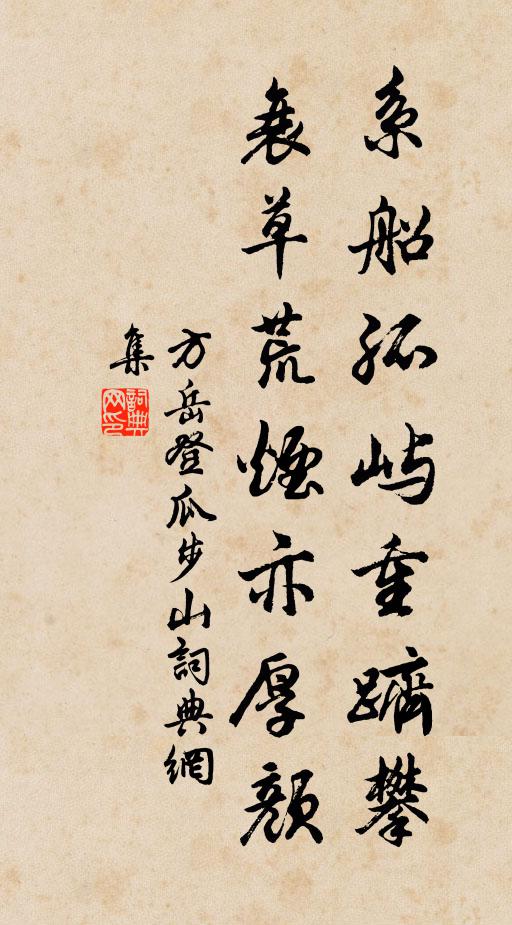 系船孤屿重跻攀
衰草荒煙亦厚颜
方岳登瓜步山詞典網
集
詞典
网印